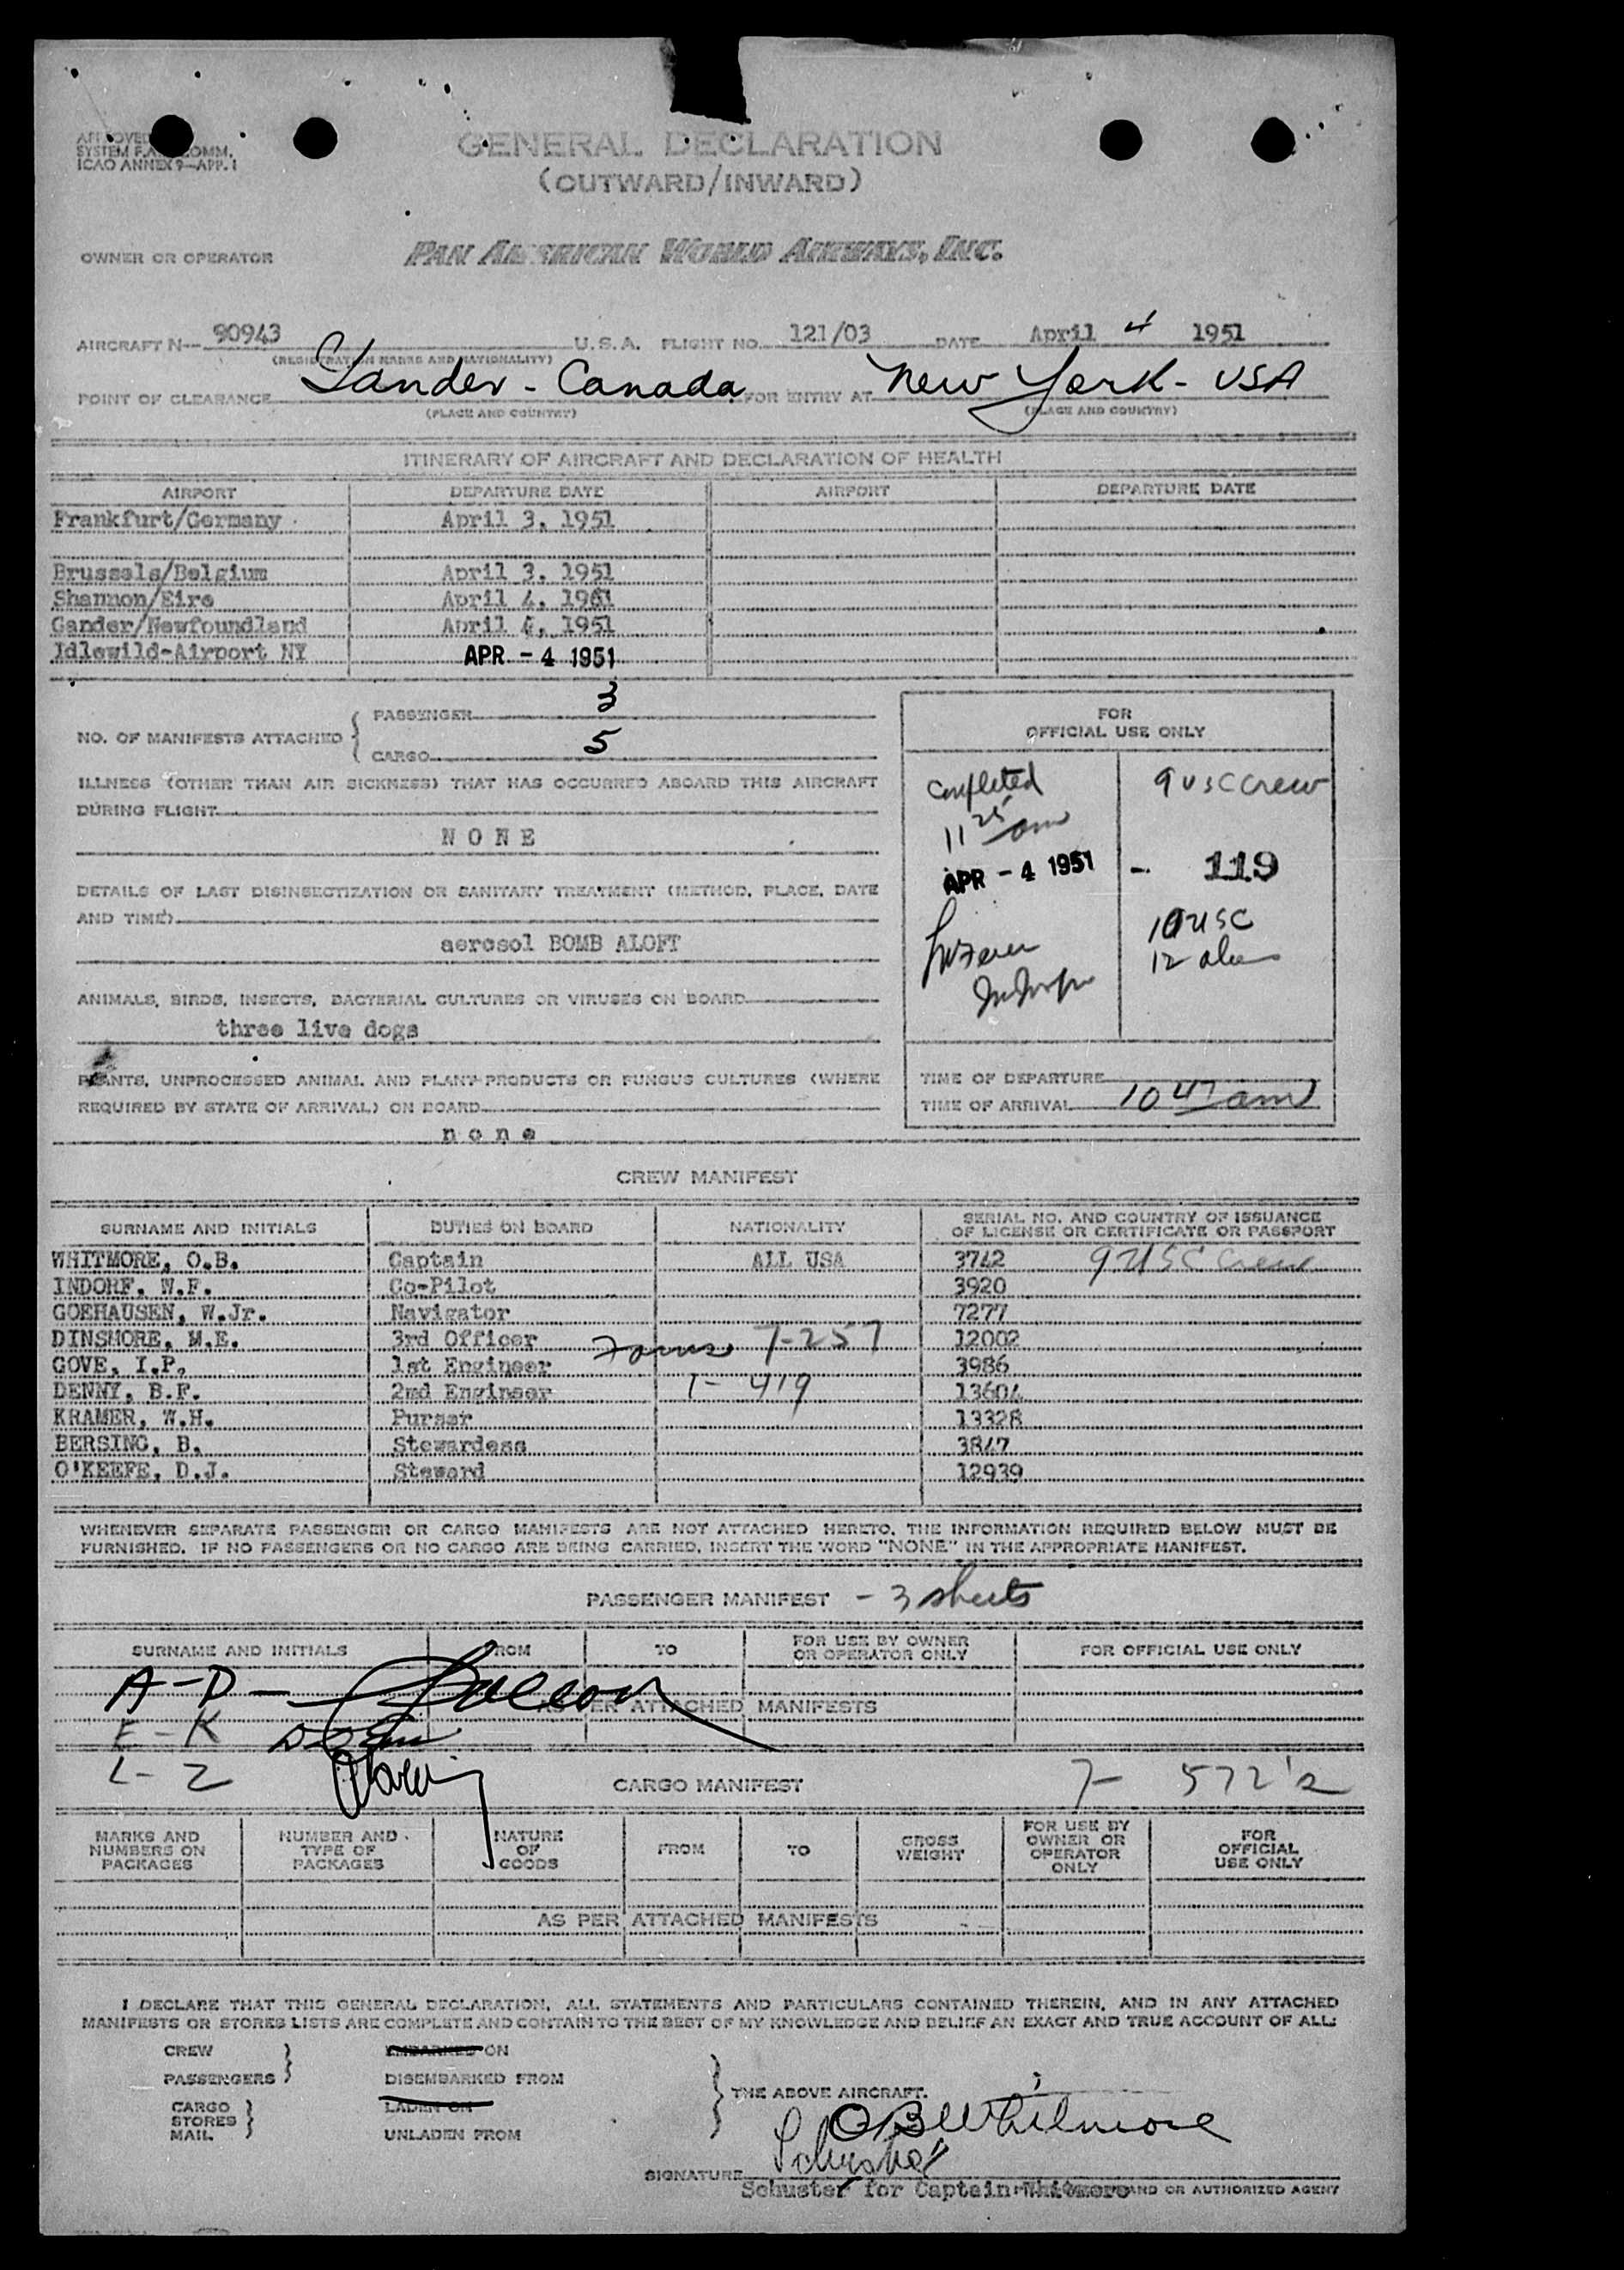 APPROVED
SYSTEM F.A.L. COMM.
ICAO ANNEX 9—APP. 1
GENERAL DECLARATION
(OUTWARD/INWARD)
OWNER OR OPERATOR PAN AMERICAN WORLD AIRWAYS, INC.
AIRCRAFT N— 90943 U.S.A. FLIGHT NO. 121/03 DATE April 4 1951
(REGISTRATION MARKS AND NATIONALITY)
POINT OF CLEARANCE Gander - Canada FOR ENTRY AT New York - USA
(PLACE AND COUNTRY) (PLACE AND COUNTRY)
ITINERARY OF AIRCRAFT AND DECLARATION OF HEALTH
AIRPORT DEPARTURE DATE AIRPORT DEPARTURE DATE
Frankfurt/Germany April 3, 1951
Brussels/Belgium April 3, 1951
Shannon/Eire April 4, 1951
Gander/Newfoundland April 4, 1951
Idlewild-Airport NY APR - 4 1951
NO. OF MANIFESTS ATTACHED { PASSENGER 3
CARGO 5
ILLNESS (OTHER THAN AIR SICKNESS) THAT HAS OCCURRED ABOARD THIS AIRCRAFT
DURING FLIGHT
NONE
DETAILS OF LAST DISINSECTIZATION OR SANITARY TREATMENT (METHOD, PLACE, DATE
AND TIME)
aerosol BOMB ALOFT
ANIMALS, BIRDS, INSECTS, BACTERIAL CULTURES OR VIRUSES ON BOARD
three live dogs
PLANTS, UNPROCESSED ANIMAL AND PLANT PRODUCTS OR FUNGUS CULTURES (WHERE
REQUIRED BY STATE OF ARRIVAL) ON BOARD
none
FOR
OFFICIAL USE ONLY
Completed
11 25 am
APR - 4 1951
9 USC Crew
- 119
10 USC
12 alns
TIME OF DEPARTURE
TIME OF ARRIVAL 10 47 am
CREW MANIFEST
SURNAME AND INITIALS DUTIES ON BOARD NATIONALITY SERIAL NO. AND COUNTRY OF ISSUANCE
OF LICENSE OR CERTIFICATE OR PASSPORT
WHITMORE, O.B. Captain ALL USA 3742 9 USC Crew
INDORF, W.F. Co-Pilot 3920
GOEHAUSEN, W.Jr. Navigator 7277
DINSMORE, M.E. 3rd Officer 12002
Forms I-257
GOVE, I.P. 1st Engineer 3986
DENNY, B.F. 2nd Engineer I- 419 13604
KRAMER, W.H. Purser 13328
BERSING, B. Stewardess 3847
O'KEEFE, D.J. Steward 12939
WHENEVER SEPARATE PASSENGER OR CARGO MANIFESTS ARE NOT ATTACHED HERETO, THE INFORMATION REQUIRED BELOW MUST BE
FURNISHED. IF NO PASSENGERS OR NO CARGO ARE BEING CARRIED, INSERT THE WORD "NONE" IN THE APPROPRIATE MANIFEST.
PASSENGER MANIFEST - 3 sheets
SURNAME AND INITIALS FROM TO FOR USE BY OWNER
OR OPERATOR ONLY FOR OFFICIAL USE ONLY
A-D -
AS PER ATTACHED MANIFESTS
E-K
L-Z
CARGO MANIFEST 7- 572's
MARKS AND
NUMBERS ON
PACKAGES
NUMBER AND
TYPE OF
PACKAGES
NATURE
OF
GOODS
FROM
TO
GROSS
WEIGHT
FOR USE BY
OWNER OR
OPERATOR
ONLY
FOR
OFFICIAL
USE ONLY
AS PER ATTACHED MANIFESTS
I DECLARE THAT THIS GENERAL DECLARATION, ALL STATEMENTS AND PARTICULARS CONTAINED THEREIN, AND IN ANY ATTACHED
MANIFESTS OR STORES LISTS ARE COMPLETE AND CONTAIN TO THE BEST OF MY KNOWLEDGE AND BELIEF AN EXACT AND TRUE ACCOUNT OF ALL:
CREW
PASSENGERS }
EMBARKED ON
DISEMBARKED FROM
CARGO
STORES
MAIL }
LADEN ON
UNLADEN FROM
} THE ABOVE AIRCRAFT.
OBWhitmore
Schuster
SIGNATURE
Schuster for Captain Whitmore AND OR AUTHORIZED AGENT